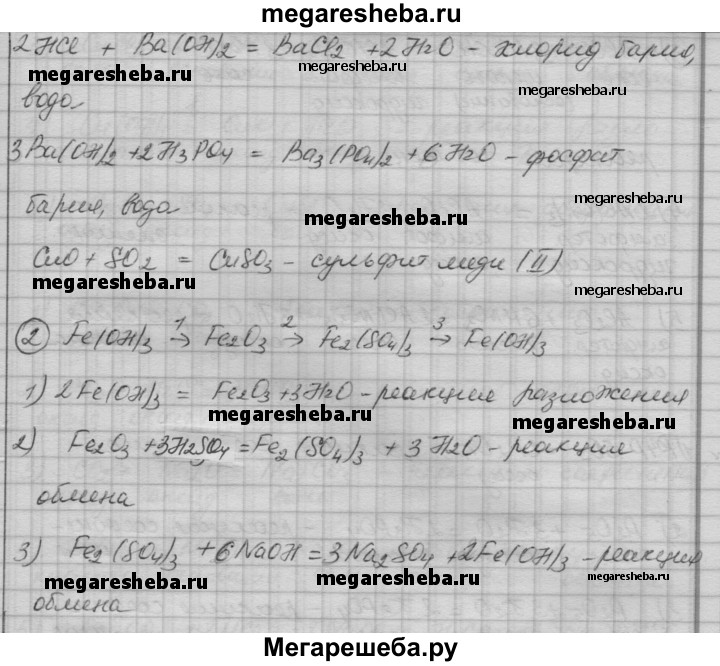 megaresheba.ru
2HCl + Ba(OH)2 = BaCl2 + 2H2O - хлорид бария,
megaresheba.ru megaresheba.ru
вода megaresheba.ru
3Ba(OH)2 + 2H3PO4 = Ba3(PO4)2 + 6H2O - фосфат
бария, вода megaresheba.ru megaresheba.ru
CuO + SO2 = CuSO3 - сульфит меди (II)
megaresheba.ru megaresheba.ru
② Fe(OH)3 →1 Fe2O3 →2 Fe2(SO4)3 →3 Fe(OH)3
1) 2Fe(OH)3 = Fe2O3 + 3H2O - реакция разложения
megaresheba.ru megaresheba.ru
2) Fe2O3 + 3H2SO4 = Fe2(SO4)3 + 3H2O - реакция
обмена
3) Fe2(SO4)3 + 6NaOH = 3Na2SO4 + 2Fe(OH)3 - реакция
megaresheba.ru megaresheba.ru megaresheba.ru
обмена
Мегарешеба.ру